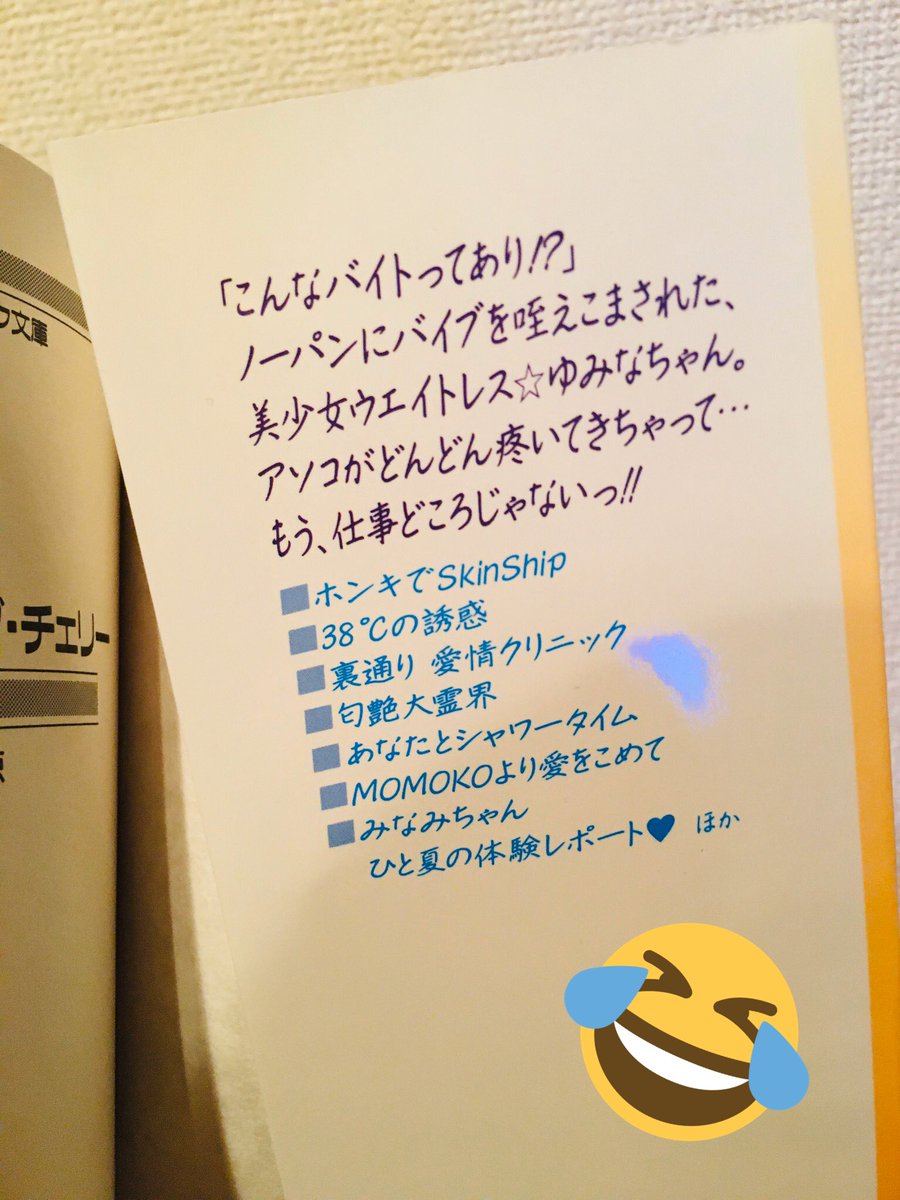 フ文庫
・チェリー
「こんなバイトってあり!?」
ノーパンにバイブを咥えこまされた、
美少女ウエイトレス☆ゆみなちゃん。
アソコがどんどん疼いてきちゃって…
もう、仕事どころじゃないっ!!
■ホンキでSkinShip
■38℃の誘惑
■裏通り 愛情クリニック
■匂艶大霊界
■あなたとシャワータイム
■MOMOKOより愛をこめて
■みなみちゃん
ひと夏の体験レポート♥ ほか